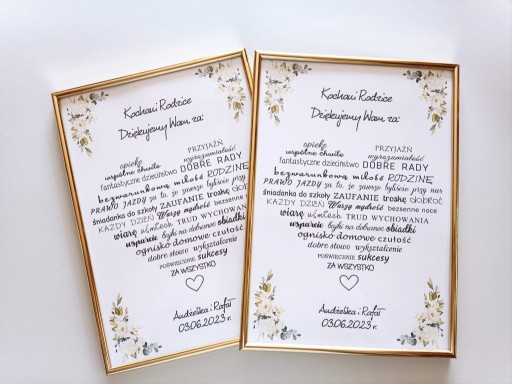 Kochani Rodzice
Dziękujemy Wam za:
opiekę
PRZYJAŹŃ
wspólne chwile
wyrozumiałość
fantastyczne dzieciństwo DOBRE RADY
bezwarunkową miłość RODZINĘ
PRAWO JAZDY za to, że zawsze byliście przy
śniadanka do szkoły ZAUFANIE troskę
KAŻDY DZIEŃ Waszą mądrość bezsenne noce
wiarę uśmiech TRUD WYCHOWANIA
wsparcie bajki na dobranoc obiadki
ognisko domowe czułość
dobre słowo wykształcenie
POŚWIĘCENIE sukcesy
ZA WSZYSTKO
Andżelika i Rafał
03.06.2023 r.
Kochani Rodzice
Dziękujemy Wam za:
opiekę
PRZYJAŹŃ
wspólne chwile
wyrozumiałość
fantastyczne dzieciństwo DOBRE RADY
bezwarunkową miłość RODZINĘ
PRAWO JAZDY za to, że zawsze byliście przy nas
śniadanka do szkoły ZAUFANIE troskę dobroć
KAŻDY DZIEŃ Waszą mądrość bezsenne noce
wiarę uśmiech TRUD WYCHOWANIA
wsparcie bajki na dobranoc obiadki
ognisko domowe czułość
dobre słowo wykształcenie
POŚWIĘCENIE sukcesy
ZA WSZYSTKO
Andżelika i Rafał
03.06.2023 r.